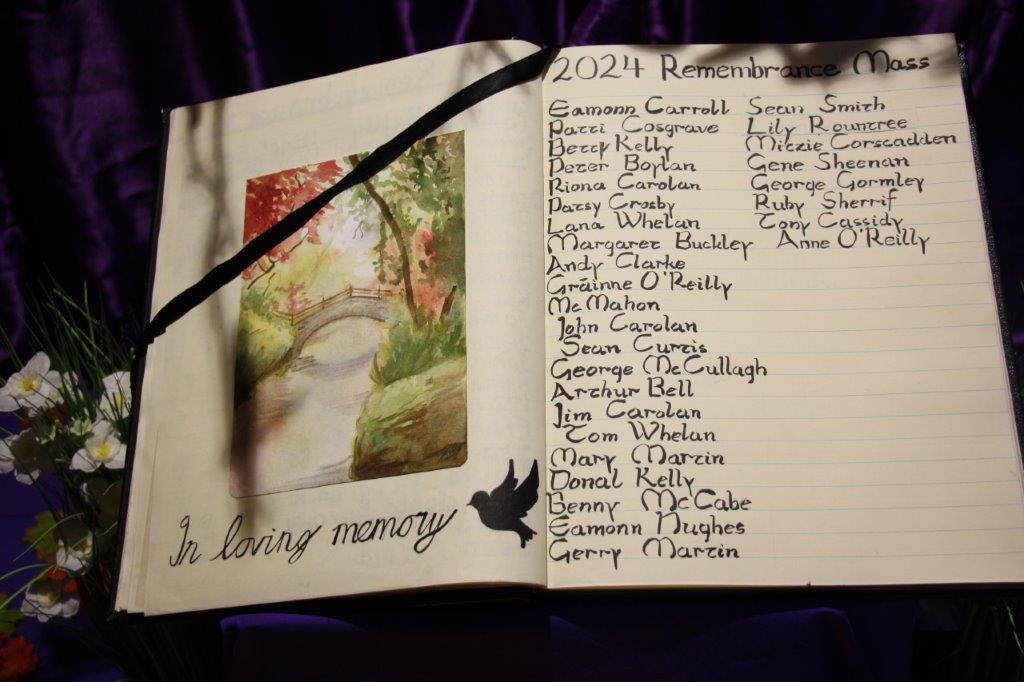 In loving memory
2024 Remembrance Mass
Eamonn Carroll
Patti Cosgrave
Betty Kelly
Peter Boylan
Riona Carolan
Patsy Crosby
Lana Whelan
Margaret Buckley
Andy Clarke
Gráinne O'Reilly
McMahon
John Carolan
Sean Curtis
George McCullagh
Arthur Bell
Jim Carolan
Tom Whelan
Mary Martin
Donal Kelly
Benny McCabe
Eamonn Hughes
Gerry Martin
Sean Smith
Lily Rountree
Mitzie Corscadden
Gene Sheenan
George Gormley
Ruby Sherrif
Tony Cassidy
Anne O'Reilly